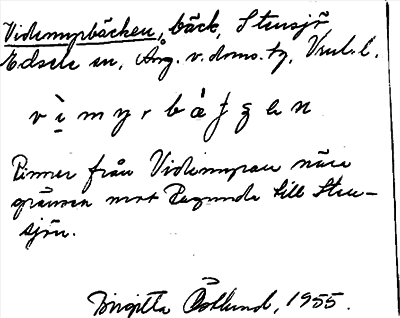 Videmyrbäcken, bäck, Stensjö
Edsele sn, Ång. v. doms. tg, Vnrl. l.
v ì m y r b à ʃ ʒ e n
Rinner från Videmyran nära
gränsen mot Ragunda till Sten-
sjön.
Birgitta Östlund, 1955.